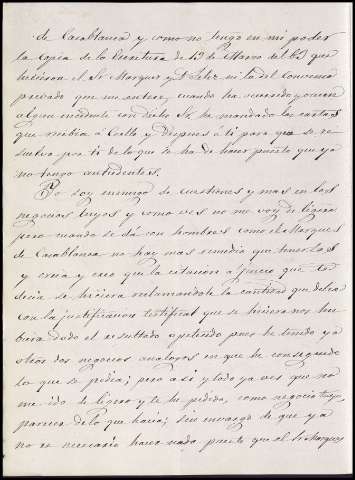 de Casablanca y como no tengo en mi poder
la copia de la Escritura de 19 de Marzo del 63 que
hicieron el Sr. Marques y D. Felix ni la del Convenio
privado que me entere, cuando ha ocurrido y ocurre
algun incidente con dicho Sr. he mandado las cartas
que recibia á Coello y despues á ti para que se re-
suelva por ti de lo que se ha de hacer puesto que yo
no tengo antecedentes.
Yo soy enemigo de cuestiones y mas en los
negocios tuyos y como ves no me voy de ligero
pero cuando se dá con hombres como el Marques
de Casablanca no hay mas remedio que tenerlas
y creia y creo que la citacion á juicio que te
decia se hiciera reclamandole la cantidad que debia
con la justificacion testifical que se hiciera nos hu-
biera dado el resultado apetecido pues he tenido ya
otros dos negocios analogos en que he conseguido
lo que se pedia; pero asi y todo ya ves que no
me ido de ligero y te he pedido, como negocio tuyo,
parecer de lo que hacia; sin embargo de que ya
no es necesario hacer nada puesto que el Sr. Marques